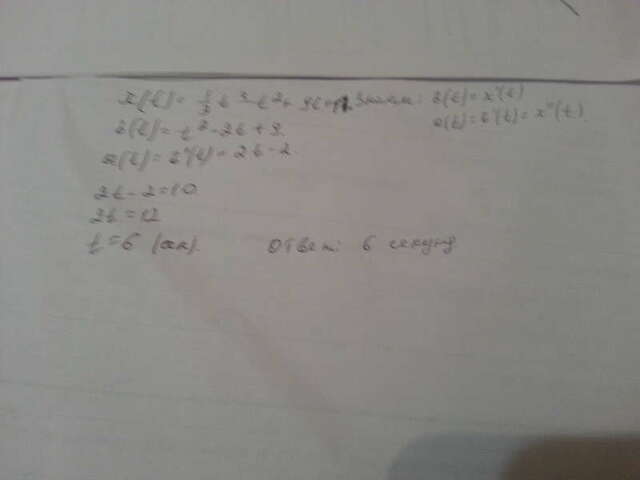 x(t) = 1/3 t³ - t² + 9t + 11. Знаем: v(t) = x'(t)
a(t) = v'(t) = x''(t).
v(t) = t² - 2t + 9.
a(t) = v'(t) = 2t - 2.
2t - 2 = 10
2t = 12
t = 6 (сек). Ответ: 6 секунд